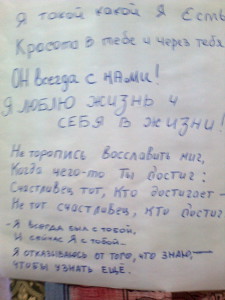 Я такой какой Я Есть
Красота в тебе и через тебя
ОН всегда с НАМИ!
Я ЛЮБЛЮ ЖИЗНЬ И
СЕБЯ В ЖИЗНИ!
Не торопись восславить миг,
Когда чего-то Ты достиг:
Счастливец тот, кто достигает –
Не тот счастливец, кто достиг
– Я всегда был с тобой,
И сейчас Я с тобой...
Я отказываюсь от того, что знаю, –
чтобы узнать ещё.